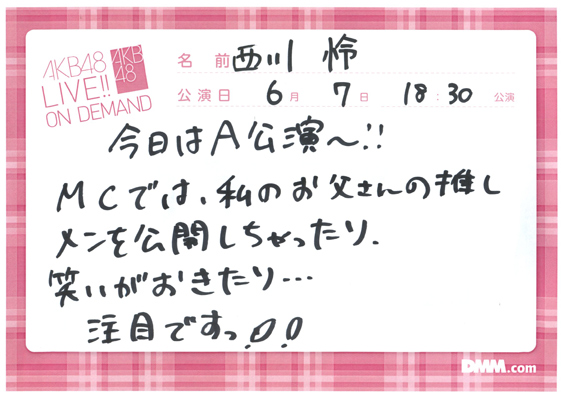 AKB48
LIVE!!
ON DEMAND
AKB
48
名 前 西川 怜
公演日 6月 7日 18:30 公演
今日はA公演〜!!
MCでは、私のお父さんの推し
メンを公開しちゃったり、
笑いがおきたり…
注目ですっ!!
DMM.com